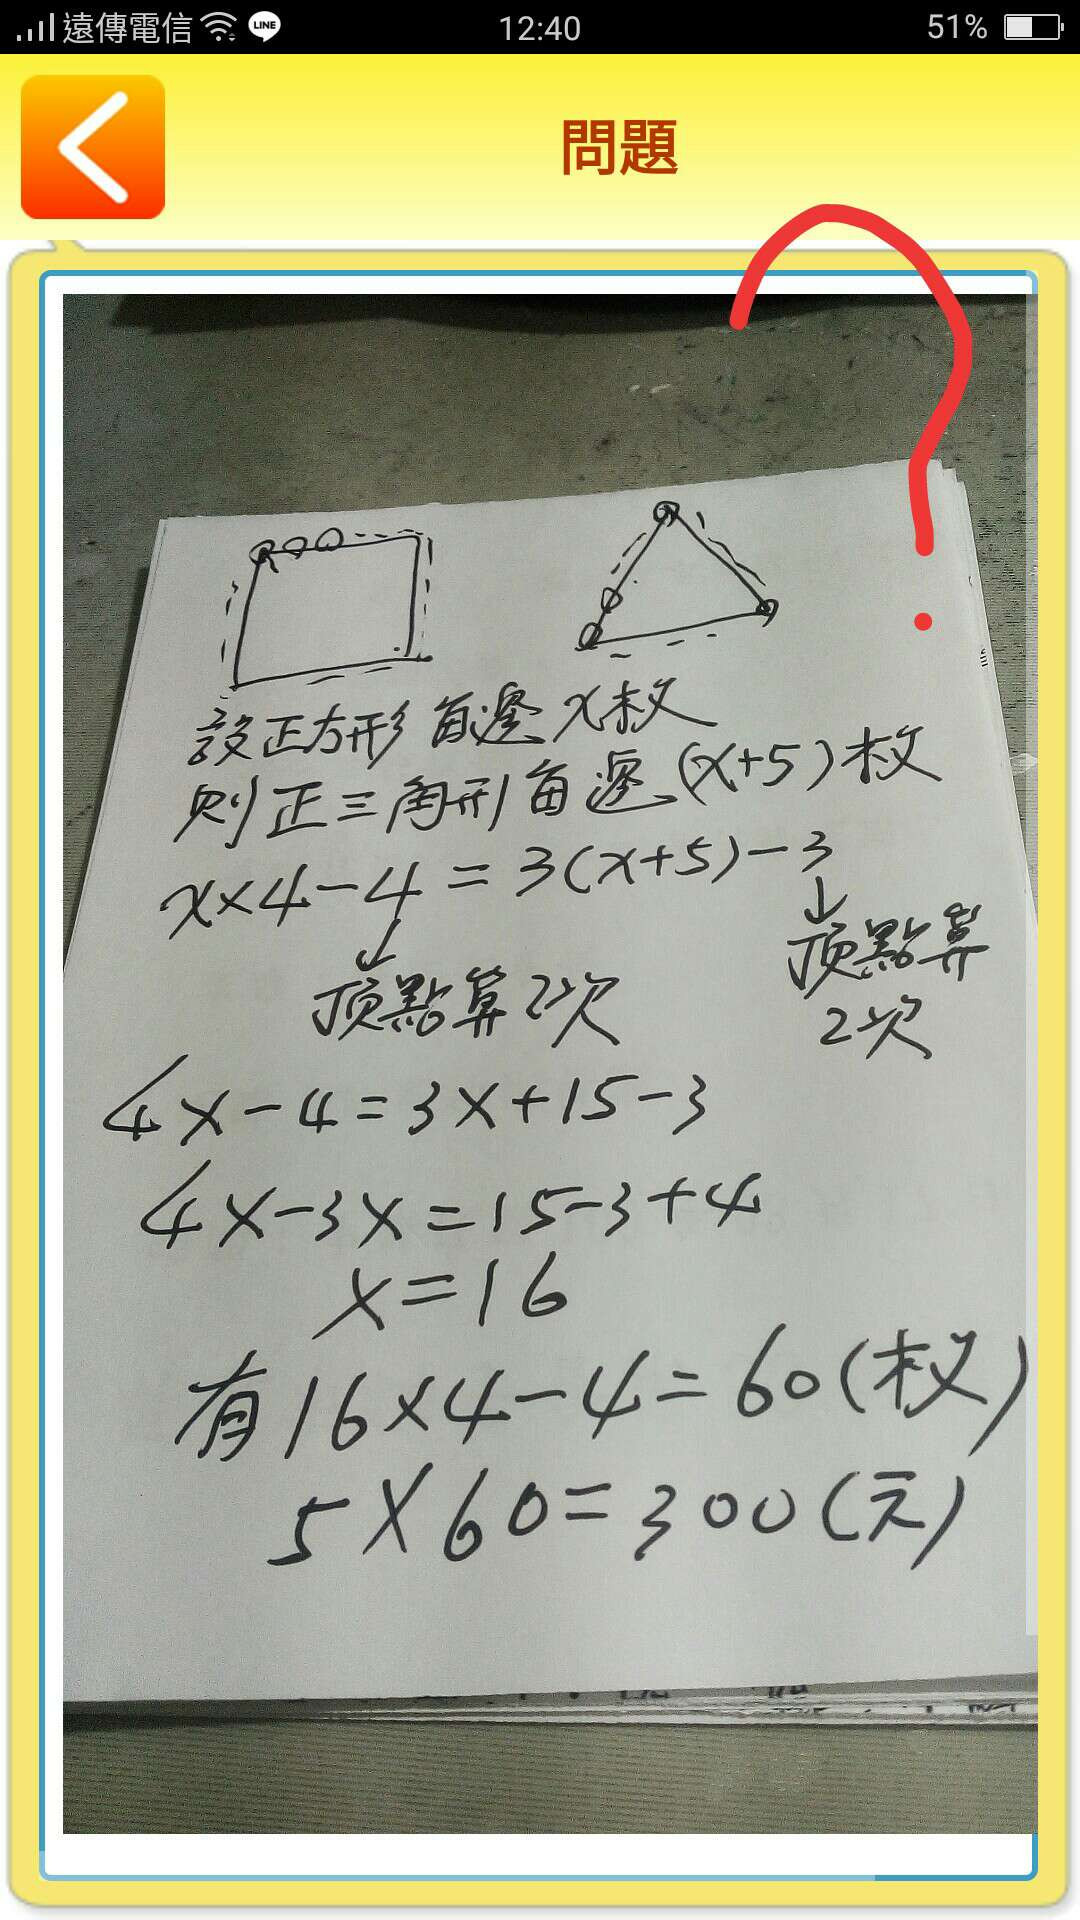 遠傳電信 LINE 12:40 51%
問題
設正方形每邊x枚
則正三角形每邊(x+5)枚
x×4-4=3(x+5)-3
頂點算2次
頂點算
2次
4x-4=3x+15-3
4x-3x=15-3+4
x=16
有16×4-4=60(枚)
5×60=300(元)